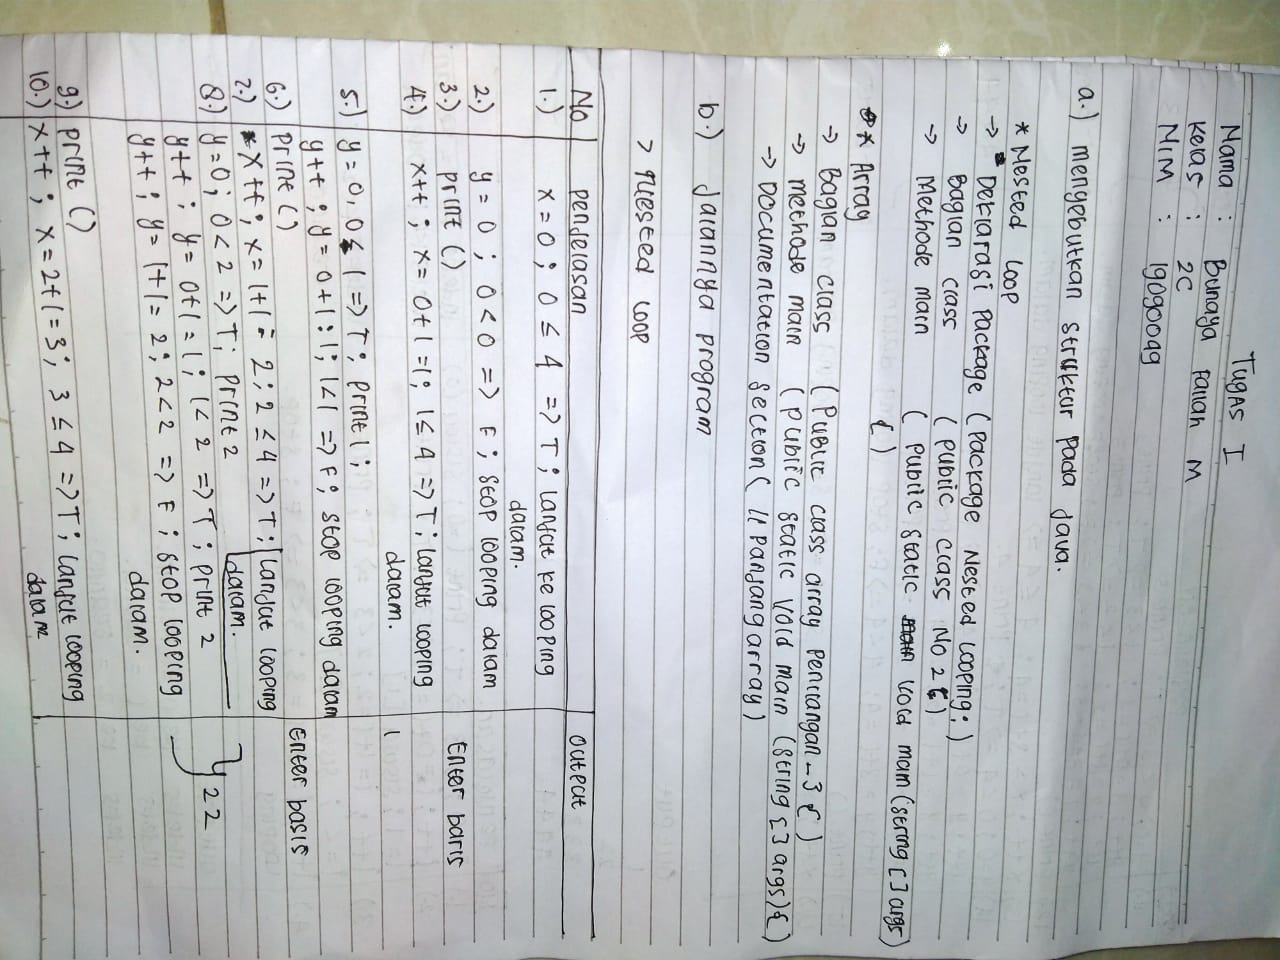 Tugas I
Nama : Bunaya Fallah M
Kelas : 2C
NIM : 19090049
a.) menyebutkan struktur pada Java.
* Nested Loop
→ Deklarasi package (package Nested Looping;)
→ Bagian class (public class No 2 {)
→ Methode main (public static void main (string [] args)
{)
* Array
→ Bagian class (Public class array penilangan_3 {)
→ methode main (public static void main (string [] args) {)
→ Documentation section (// panjang array)
b.) Jalannya program
> Nested Loop
No penjelasan output
1.) x = 0 ; 0 ≤ 4 => T ; lanjut ke looping
dalam.
2.) y = 0 ; 0 < 0 => F ; stop looping dalam
3.) print () Enter baris
4.) x++ ; x = 0+1 = 1; 1 ≤ 4 => T ; lanjut looping
dalam.
5.) y = 0, 0 < 1 => T ; print 1 ; 1
y++ ; y = 0+1 : 1 ; 1<1 => F ; stop looping dalam
6.) print () Enter basis
7.) x++ ; x = 1+1 = 2 ; 2 ≤ 4 => T ; lanjut looping
dalam.
8.) y=0 ; 0 < 2 => T ; print 2
y++ ; y = 0+1 = 1 ; 1 < 2 => T ; print 2 22
y++ ; y = 1+1 = 2 ; 2<2 => F ; stop looping
dalam.
9.) print ()
10.) x++ ; x = 2+1 = 3 ; 3 ≤ 4 => T ; lanjut looping
dalam